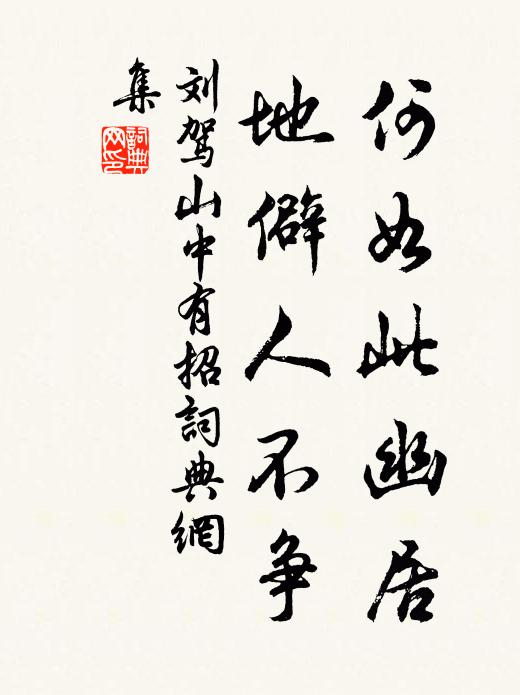 何如此幽居
地僻人不争
刘驾山中有招詞典網
集
詞典
网印